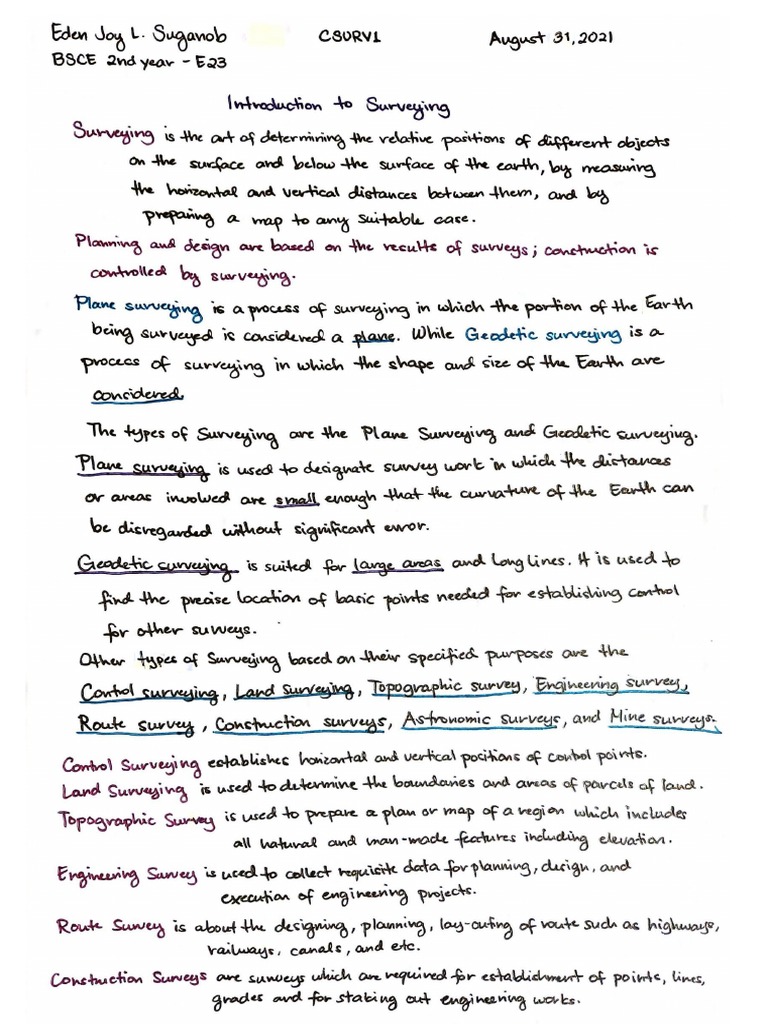 Eden Joy L. Suganob CSURV1 August 31, 2021
BSCE 2nd year - E23
Introduction to Surveying
Surveying is the art of determining the relative positions of different objects
on the surface and below the surface of the earth, by measuring
the horizontal and vertical distances between them, and by
preparing a map to any suitable case.
Planning and design are based on the results of surveys; construction is
controlled by surveying.
Plane surveying is a process of surveying in which the portion of the Earth
being surveyed is considered a plane. While Geodetic surveying is a
process of surveying in which the shape and size of the Earth are
considered.
The types of Surveying are the Plane Surveying and Geodetic surveying.
Plane surveying is used to designate survey work in which the distances
or areas involved are small enough that the curvature of the Earth can
be disregarded without significant error.
Geodetic surveying is suited for large areas and long lines. It is used to
find the precise location of basic points needed for establishing control
for other surveys.
Other types of Surveying based on their specified purposes are the
Control surveying, Land surveying, Topographic survey, Engineering survey,
Route survey, Construction surveys, Astronomic surveys, and Mine surveys.
Control Surveying establishes horizontal and vertical positions of control points.
Land Surveying is used to determine the boundaries and areas of parcels of land.
Topographic Survey is used to prepare a plan or map of a region which includes
all natural and man-made features including elevation.
Engineering Survey is used to collect requisite data for planning, design, and
execution of engineering projects.
Route Survey is about the designing, planning, lay-outing of route such as highways,
railways, canals, and etc.
Construction Surveys are surveys which are required for establishment of points, lines,
grades and for staking out engineering works.